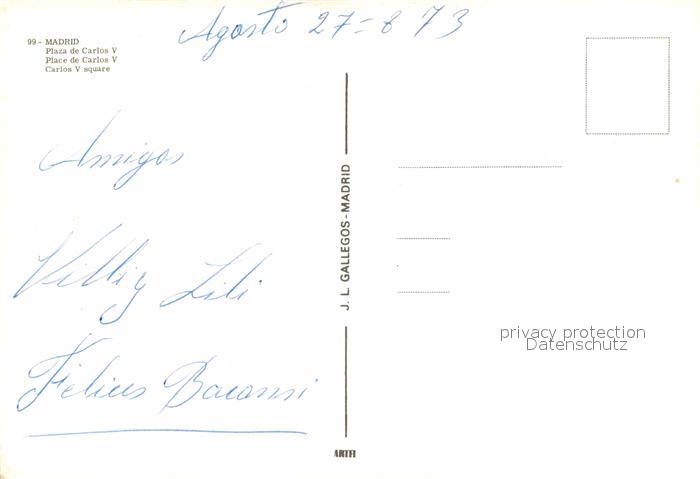 Agosto 27=8 73
99 - MADRID
Plaza de Carlos V
Place de Carlos V
Carlos V square
Amigos
Villiy Lili
Felices
J. L. GALLEGOS - MADRID
privacy protection
Datenschutz
ARTFI